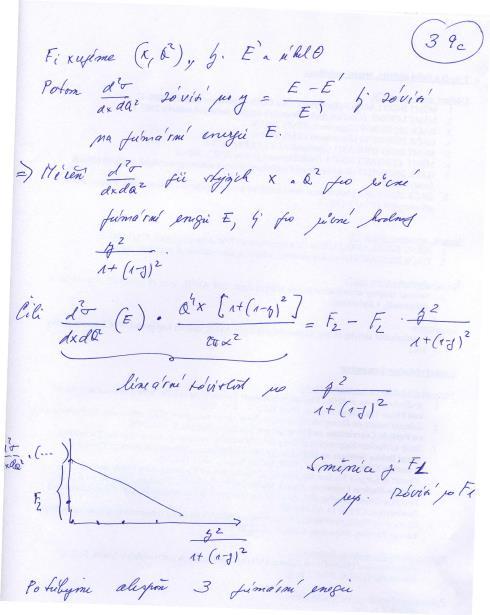 39c
Fixujeme (x, Q²), tj. E' a úhel θ
Potom d²σ/dxdQ² závisí na y = (E - E')/E tj závisí
na primární energii E.
⇒ Měření d²σ/dxdQ² při stejných x a Q² pro různé
primární energie E, tj pro různé hodnoty
y²/(1+(1-y)²).
Čili d²σ/dxdQ² (E) · Q⁴x [1+(1-y)²]/2πα² = F₂ - F_L · y²/(1+(1-y)²)
lineární závislost na y²/(1+(1-y)²)
d²σ/dxdQ² · (...)
Směrnice je F_L
resp. závisí na F₁
F₂
y²/(1+(1-y)²)
Potřebujeme alespoň 3 primární energie